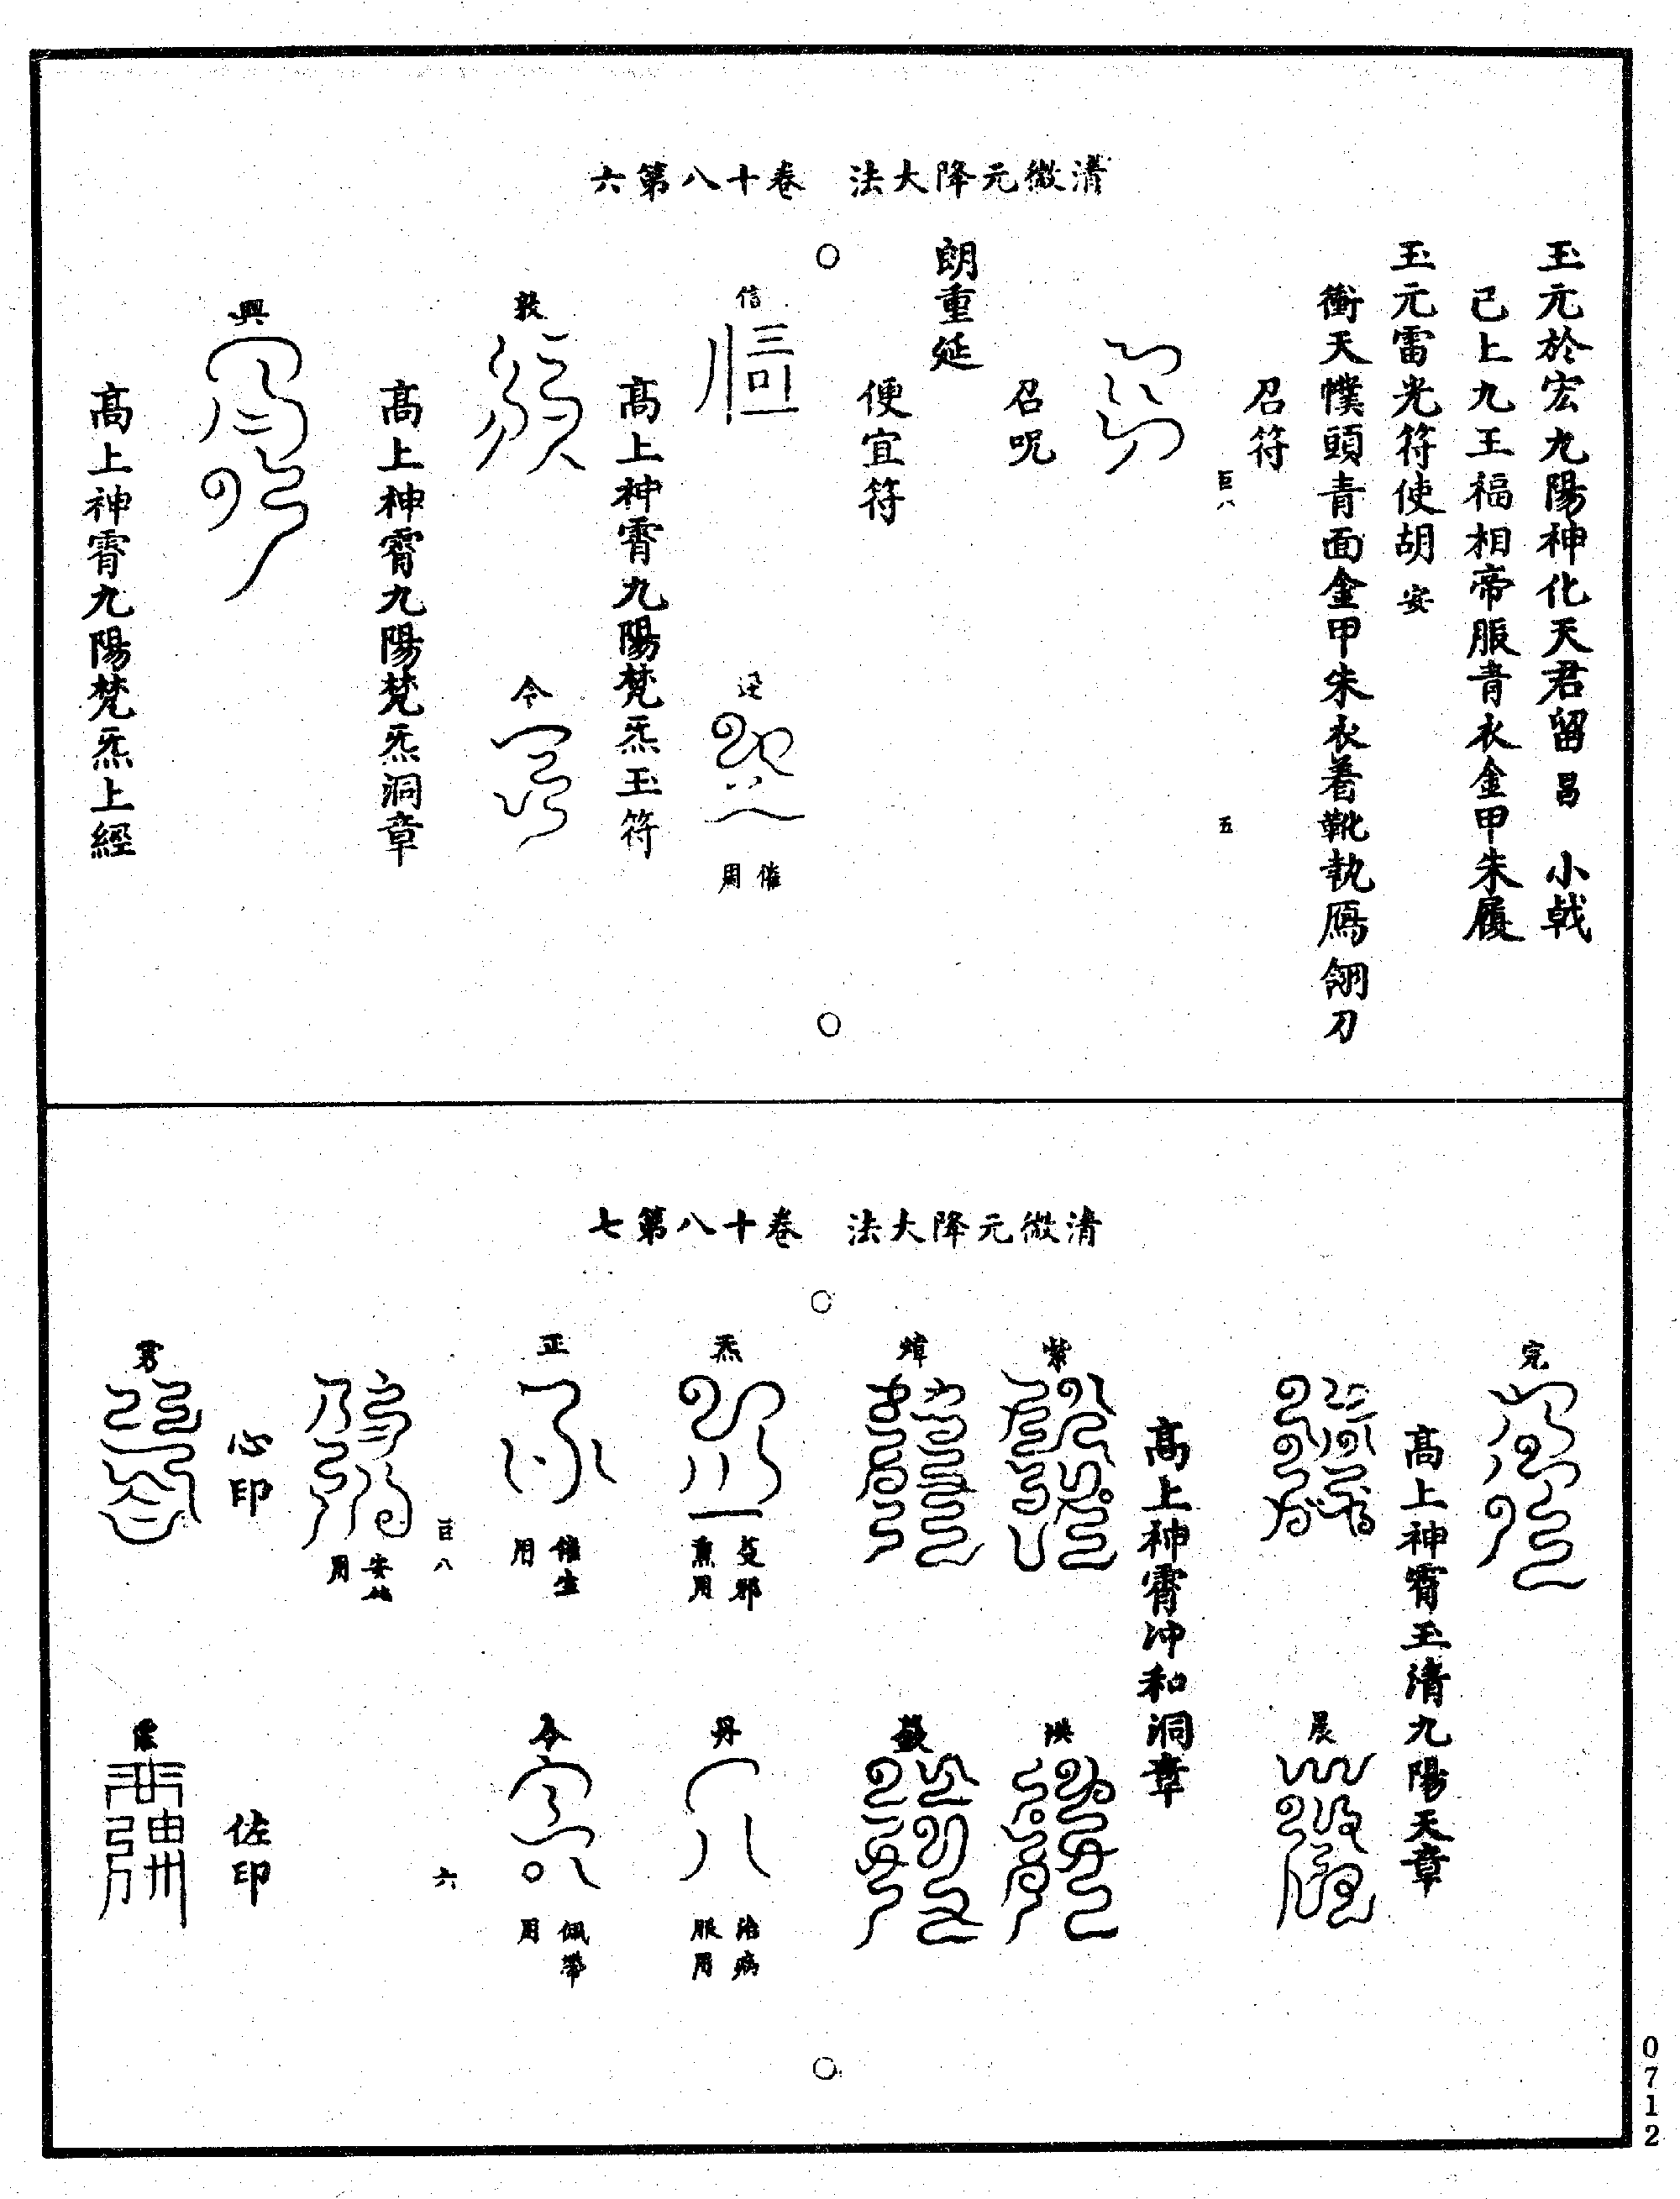 清微元降大法　卷十八第六
玉元於宏九陽神化天君留昌　小戟
已上九王福相帝服青衣金甲朱履
玉元雷光符使胡安
衝天幞頭青面金甲朱衣着靴執鴈翎刀
召符
巨八　五
召呪
朗重延
便宜符
信
逆
催用
高上神霄九陽梵炁玉符
敕
令
高上神霄九陽梵炁洞章
興
高上神霄九陽梵炁上經
清微元降大法　卷十八第七
完
高上神霄玉清九陽天章
晨
高上神霄沖和洞章
紫
洪
炁
熏用
丹
治病服用
正
催生用
令
佩帶用
巨八　六
用
心印
佐印
0712